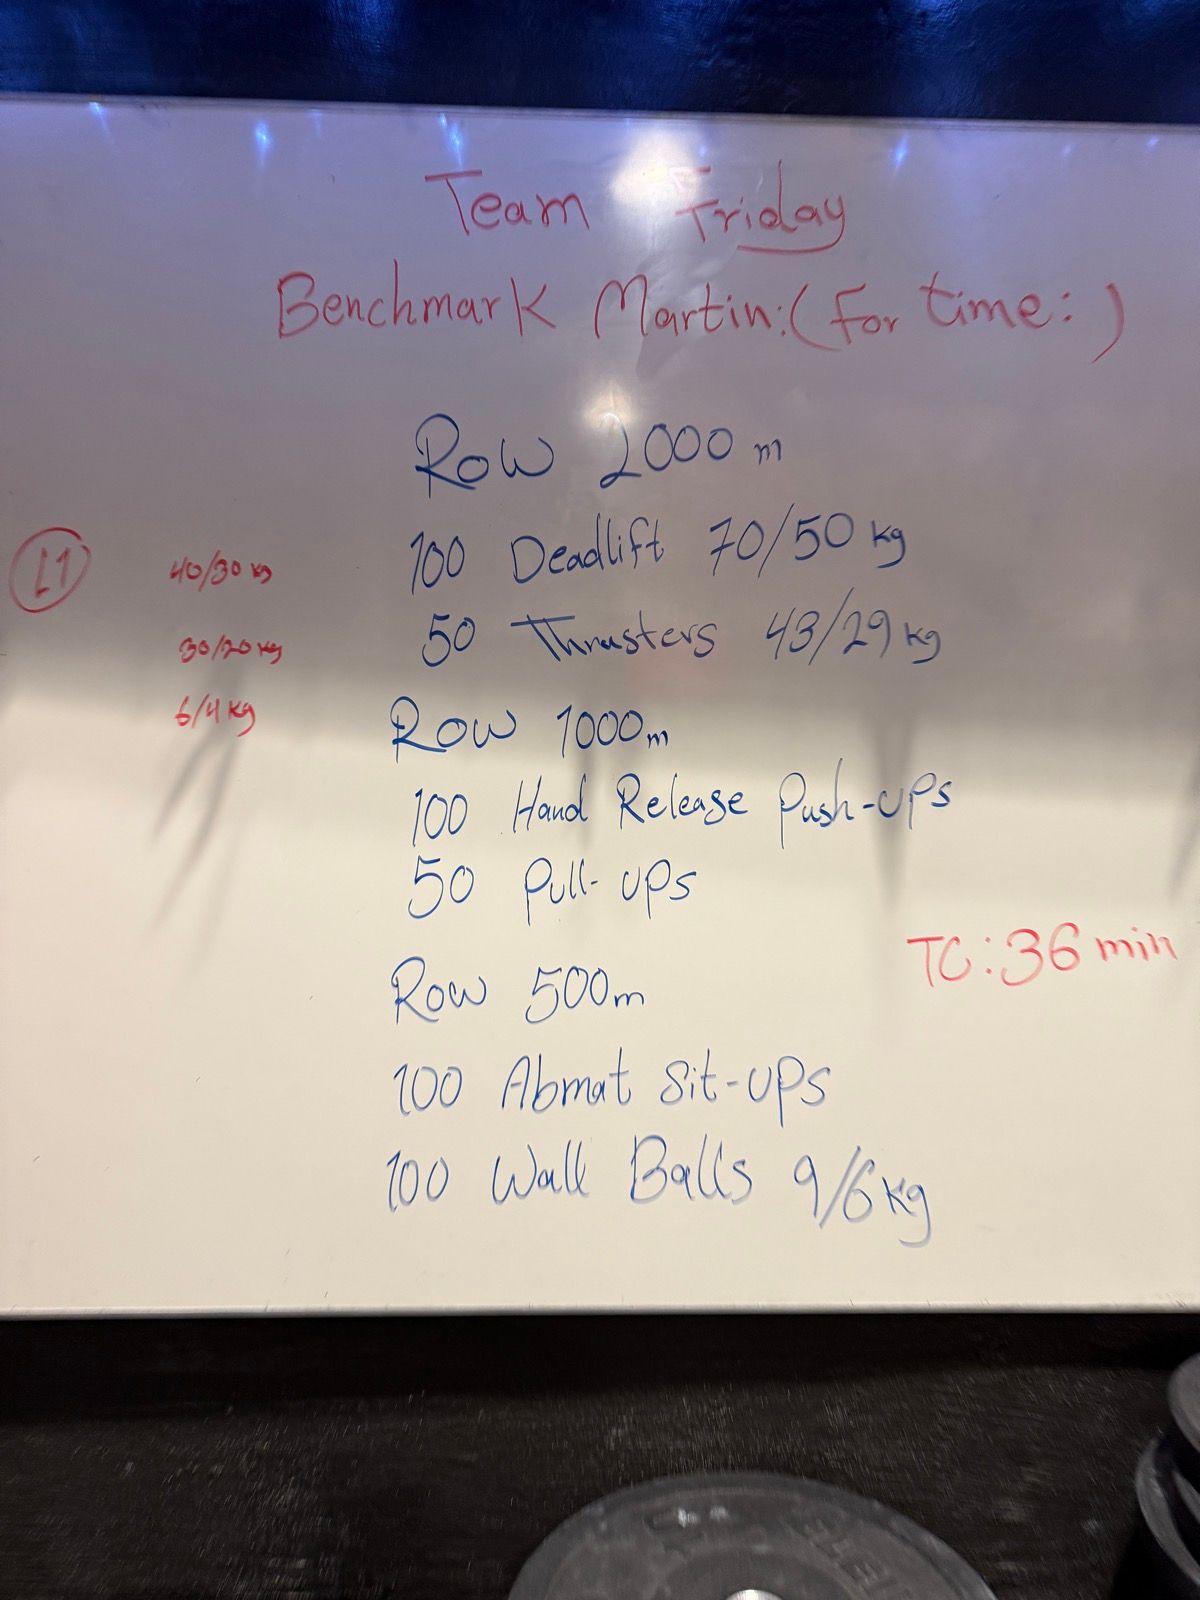 Team Friday
Benchmark Martin: (For time:)
Row 2000 m
L1
40/30 kg
100 Deadlift 70/50 kg
30/20 kg
50 Thrusters 43/29 kg
6/4 kg
Row 1000m
100 Hand Release Push-ups
50 Pull-ups
TC: 36 min
Row 500m
100 Abmat Sit-ups
100 Wall Balls 9/6 kg